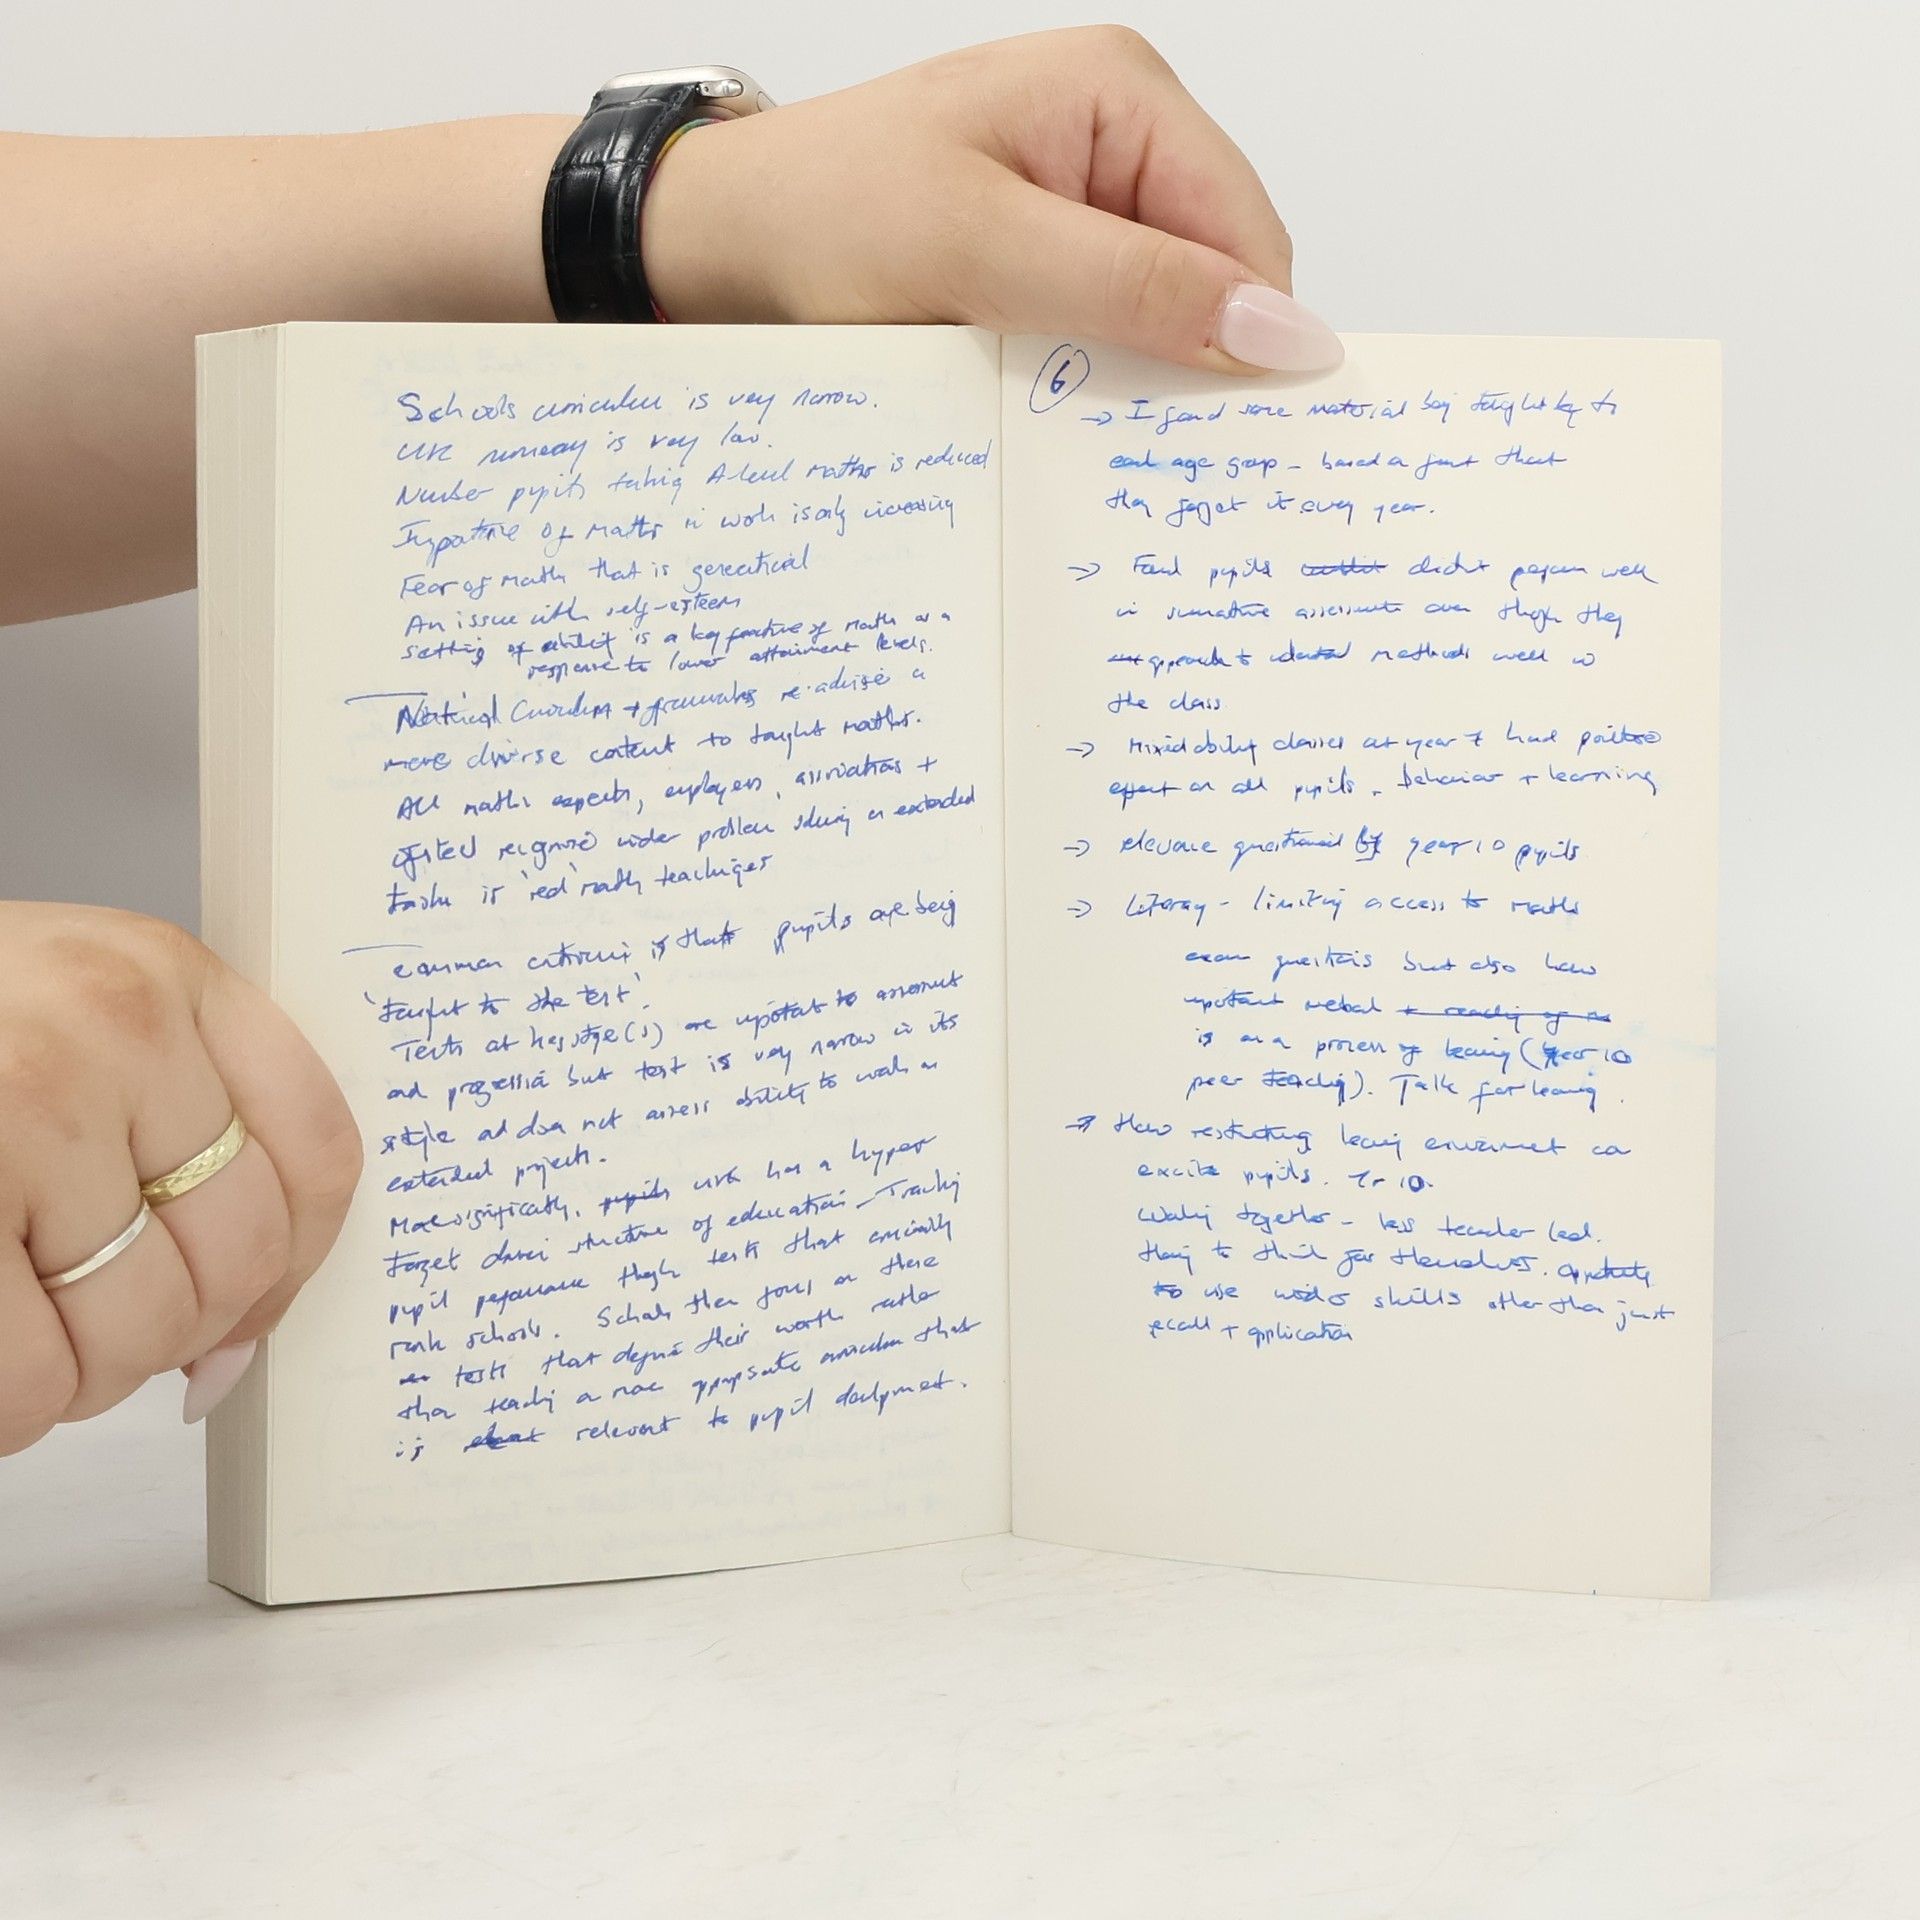 Schools curriculum is very narrow.
UK numeracy is very low.
Number pupils taking A-level maths is reduced
Importance of maths in work is only increasing
Fear of maths that is generational
An issue with self-esteem
Setting of ability is a key feature of maths as a
response to lower attainment levels.
National Curriculum + frameworks re-advise a
more diverse content to taught maths.
All maths experts, employers, associations +
ofsted recognise wider problem solving or extended
tasks is 'real' maths teaching
common criticism is that pupils are being
'taught to the test'.
Tests at key stage(s) are important to assessment
and progression but test is very narrow in its
style and does not assess ability to work on
extended projects.
More significantly, pupils work has a hyper
target driven structure of education - Tracking
pupil performance through tests that crucially
rank schools. Schools then focus on these
tests that define their worth rather
than teaching a more appropriate curriculum that
is relevant to pupil development.
6
→ I found same material being taught to
each age group - based on just that
they forget it every year.
→ Found pupils didn't perform well
in summative assessments even though they
approach to methods well in
the class
→ Mixed ability classes at year 7 had positive
effect on all pupils. behavior + learning
→ relevance questioned by year 10 pupils
→ Literacy - limiting access to maths
exam questions but also how
important verbal + reading of
is as a process of learning (year 10
peer teaching). Talk for learning.
→ How restructuring learning environment can
excite pupils. Yr 10.
Working together - less teacher led.
Having to think for themselves. Opportunity
to use wider skills other than just
recall + application